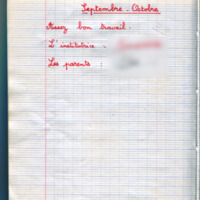 Septembre - Octobre
Assez bon travail.
L'institutrice :
Les parents :